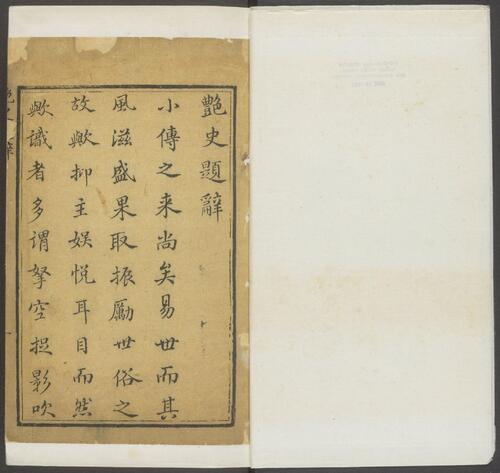 艷史題辭
小傳之来尚矣易世而其
風滋盛果取振勵世俗之
故歟抑主娛悦耳目而然
歟識者多謂拏空捉影吹